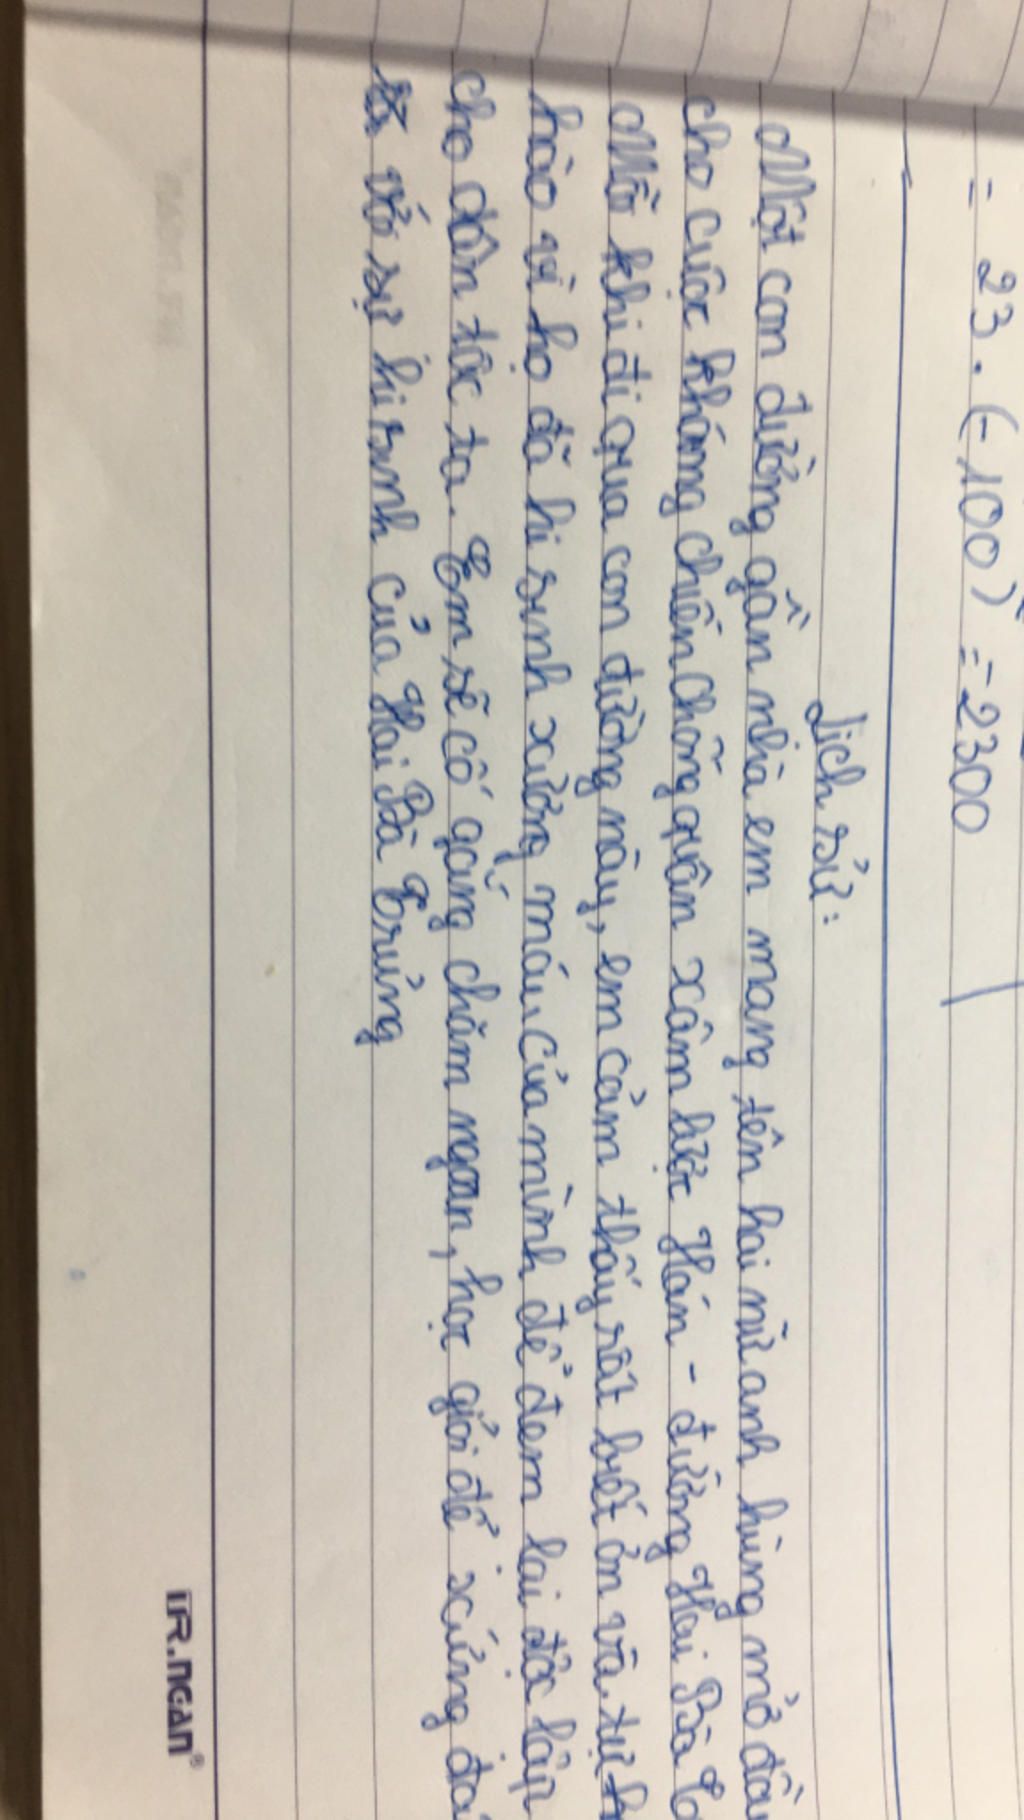 = 23 . (-100) = -2300
Lịch sử:
Một con đường gần nhà em mang tên hai nữ anh hùng mở đầu
cho cuộc kháng chiến chống quân xâm lược Hán - đường Hai Bà
Mỗi khi đi qua con đường này, em cảm thấy rất biết ơn và tự
hào vì họ đã hi sinh xương máu của mình để đem lại độc lập
cho dân tộc ta. Em sẽ cố gắng chăm ngoan, học giỏi để xứng
với sự hi sinh của Hai Bà Trưng
TR.NGAN®